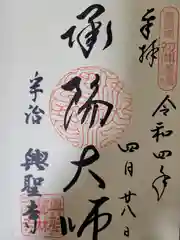 奉拝
令和四年
四月廿八日
承陽大師
宇治
興聖寺